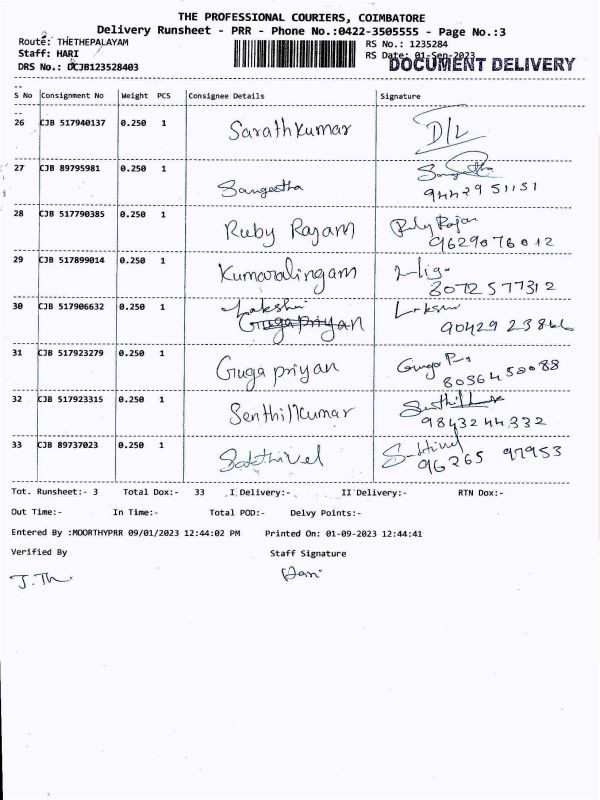 THE PROFESSIONAL COURIERS, COIMBATORE
Delivery Runsheet - PRR - Phone No.:0422-3505555 - Page No.:3
Route: THETHEPALAYAM RS No.: 1235284
Staff: HARI RS Date: 01-Sep-2023
DRS No.: DCJB123528403 DOCUMENT DELIVERY
S No Consignment No Weight PCS Consignee Details Signature
26 CJB 517940137 0.250 1 Sarathkumar D/L
27 CJB 89795981 0.250 1 Sangeetha Sangeetha
94429 51151
28 CJB 517790385 0.250 1 Ruby Rajam Ruby Rajam
9629076012
29 CJB 517899014 0.250 1 Kumaralingam
8072577312
30 CJB 517906632 0.250 1 Lakshmi Gugapriyan
90429 23866
31 CJB 517923279 0.250 1 Guga priyan Guga P
8056458088
32 CJB 517923315 0.250 1 Senthilkumar
9843244332
33 CJB 89737023 0.250 1 Sakthivel
96265 97953
Tot. Runsheet:- 3 Total Dox:- 33 I Delivery:- II Delivery:- RTN Dox:-
Out Time:- In Time:- Total POD:- Delvy Points:-
Entered By :MOORTHYPRR 09/01/2023 12:44:02 PM Printed On: 01-09-2023 12:44:41
Verified By Staff Signature
Hari